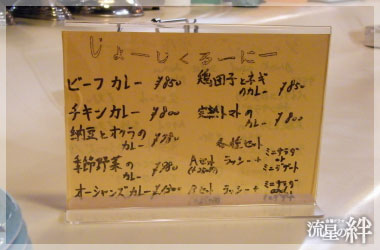 じょーじくるーにー
ビーフカレー ¥850
チキンカレー ¥800
納豆とオクラの
カレー ¥780
季節野菜の
カレー ¥780
オーシャンズカレー
鶏団子とネギ
のカレー ¥850
完熟トマトの
カレー ¥800
各種セット
Aセット ラッシー+ ミニサラダ
or
ミニデザート
Bセット ラッシー+ ミニサラダ
流星の絆